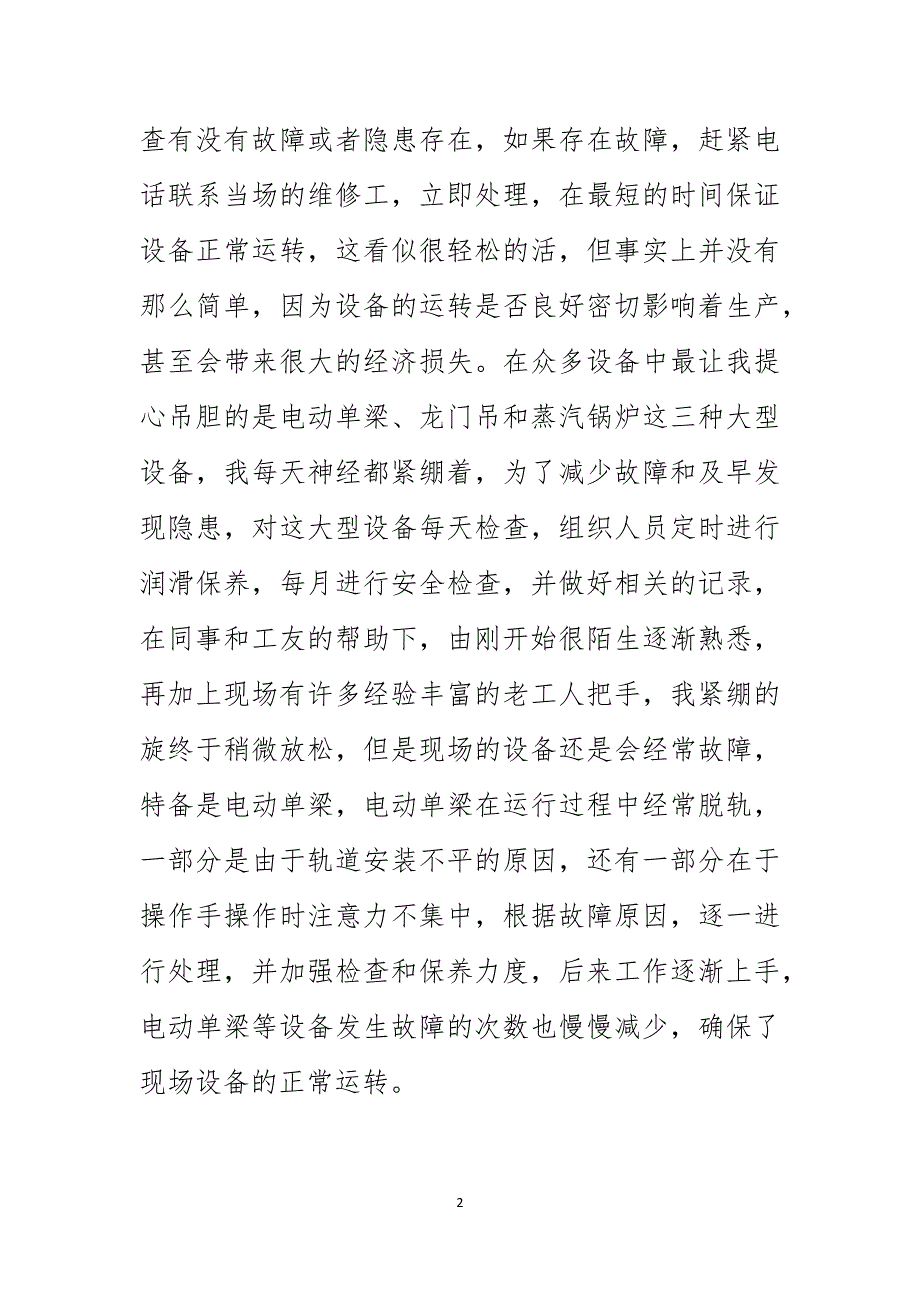 查有没有故障或者隐患存在，如果存在故障，赶紧电
话联系当场的维修工，立即处理，在最短的时间保证
设备正常运转，这看似很轻松的活，但事实上并没有
那么简单，因为设备的运转是否良好密切影响着生产，
甚至会带来很大的经济损失。在众多设备中最让我提
心吊胆的是电动单梁、龙门吊和蒸汽锅炉这三种大型
设备，我每天神经都紧绷着，为了减少故障和及早发
现隐患，对这大型设备每天检查，组织人员定时进行
润滑保养，每月进行安全检查，并做好相关的记录，
在同事和工友的帮助下，由刚开始很陌生逐渐熟悉，
再加上现场有许多经验丰富的老工人把手，我紧绷的
旋终于稍微放松，但是现场的设备还是会经常故障，
特备是电动单梁，电动单梁在运行过程中经常脱轨，
一部分是由于轨道安装不平的原因，还有一部分在于
操作手操作时注意力不集中，根据故障原因，逐一进
行处理，并加强检查和保养力度，后来工作逐渐上手，
电动单梁等设备发生故障的次数也慢慢减少，确保了
现场设备的正常运转。
2